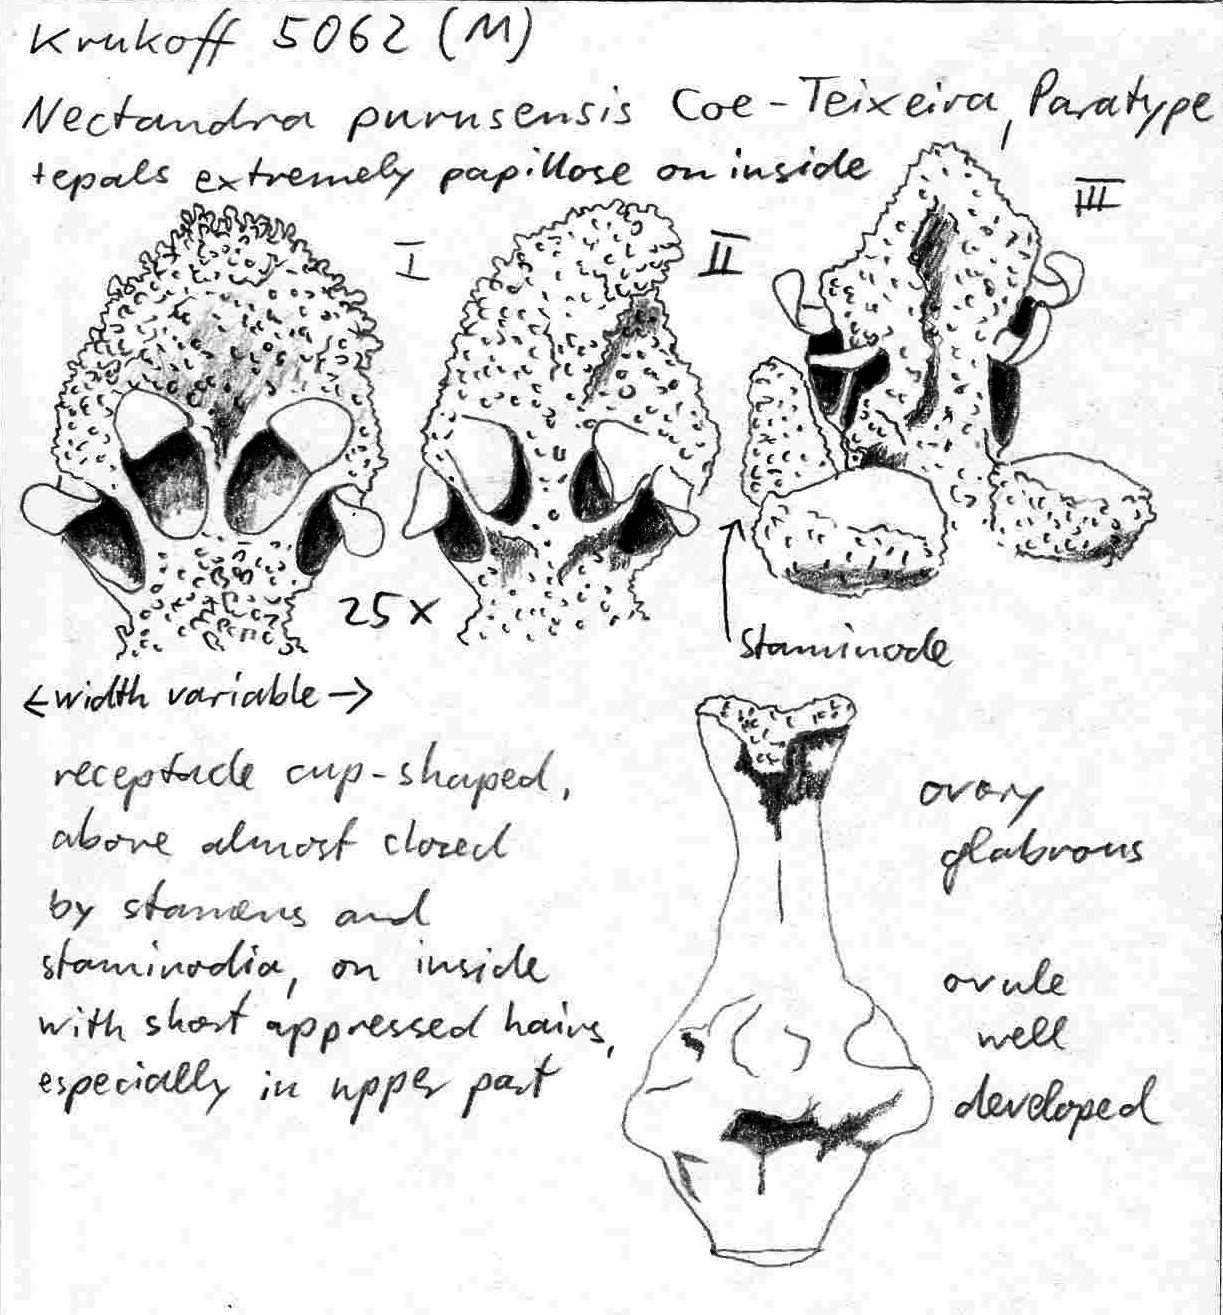 Krukoff 5062 (M)
Nectandra purusensis Coe-Teixeira, Paratype
tepals extremely papillose on inside
I
II
III
25x
staminode
←width variable→
receptacle cup-shaped,
above almost closed
by stamens and
staminodia, on inside
with short appressed hairs,
especially in upper part
ovary
glabrous
ovule
well
developed